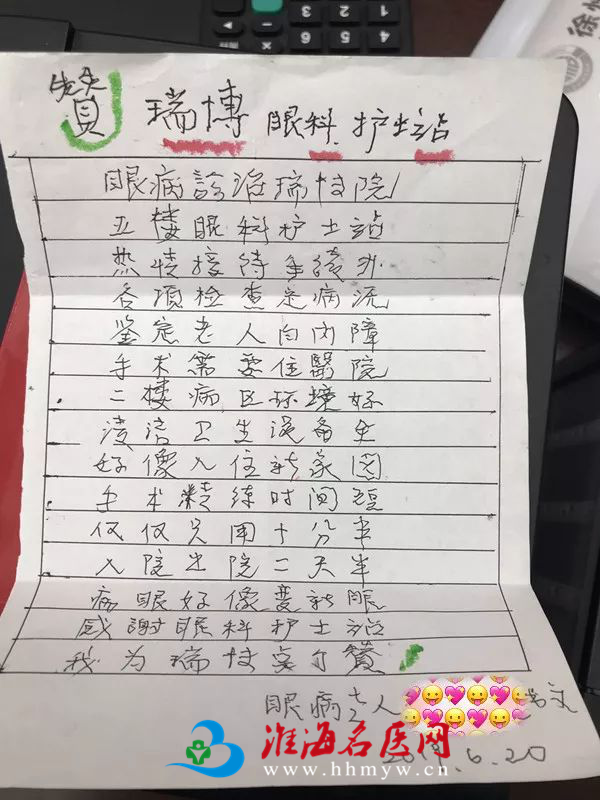 6 5 4
3 2 1
徐州
赞 瑞博眼科护士站
眼病診治瑞博院
五楼眼科护士站
热情接待手续办
各项检查定病流
鉴定老人白内障
手术需要住醫院
二楼病区环境好
清洁卫生设备全
好像入住新家园
手术精练时间短
仅仅只用十分半
入院出院二天半
病眼好像变新眼
感謝眼科护士站
我为瑞博点个赞
眼病老人
6.20
淮海名医网
www.hhmyw.cn